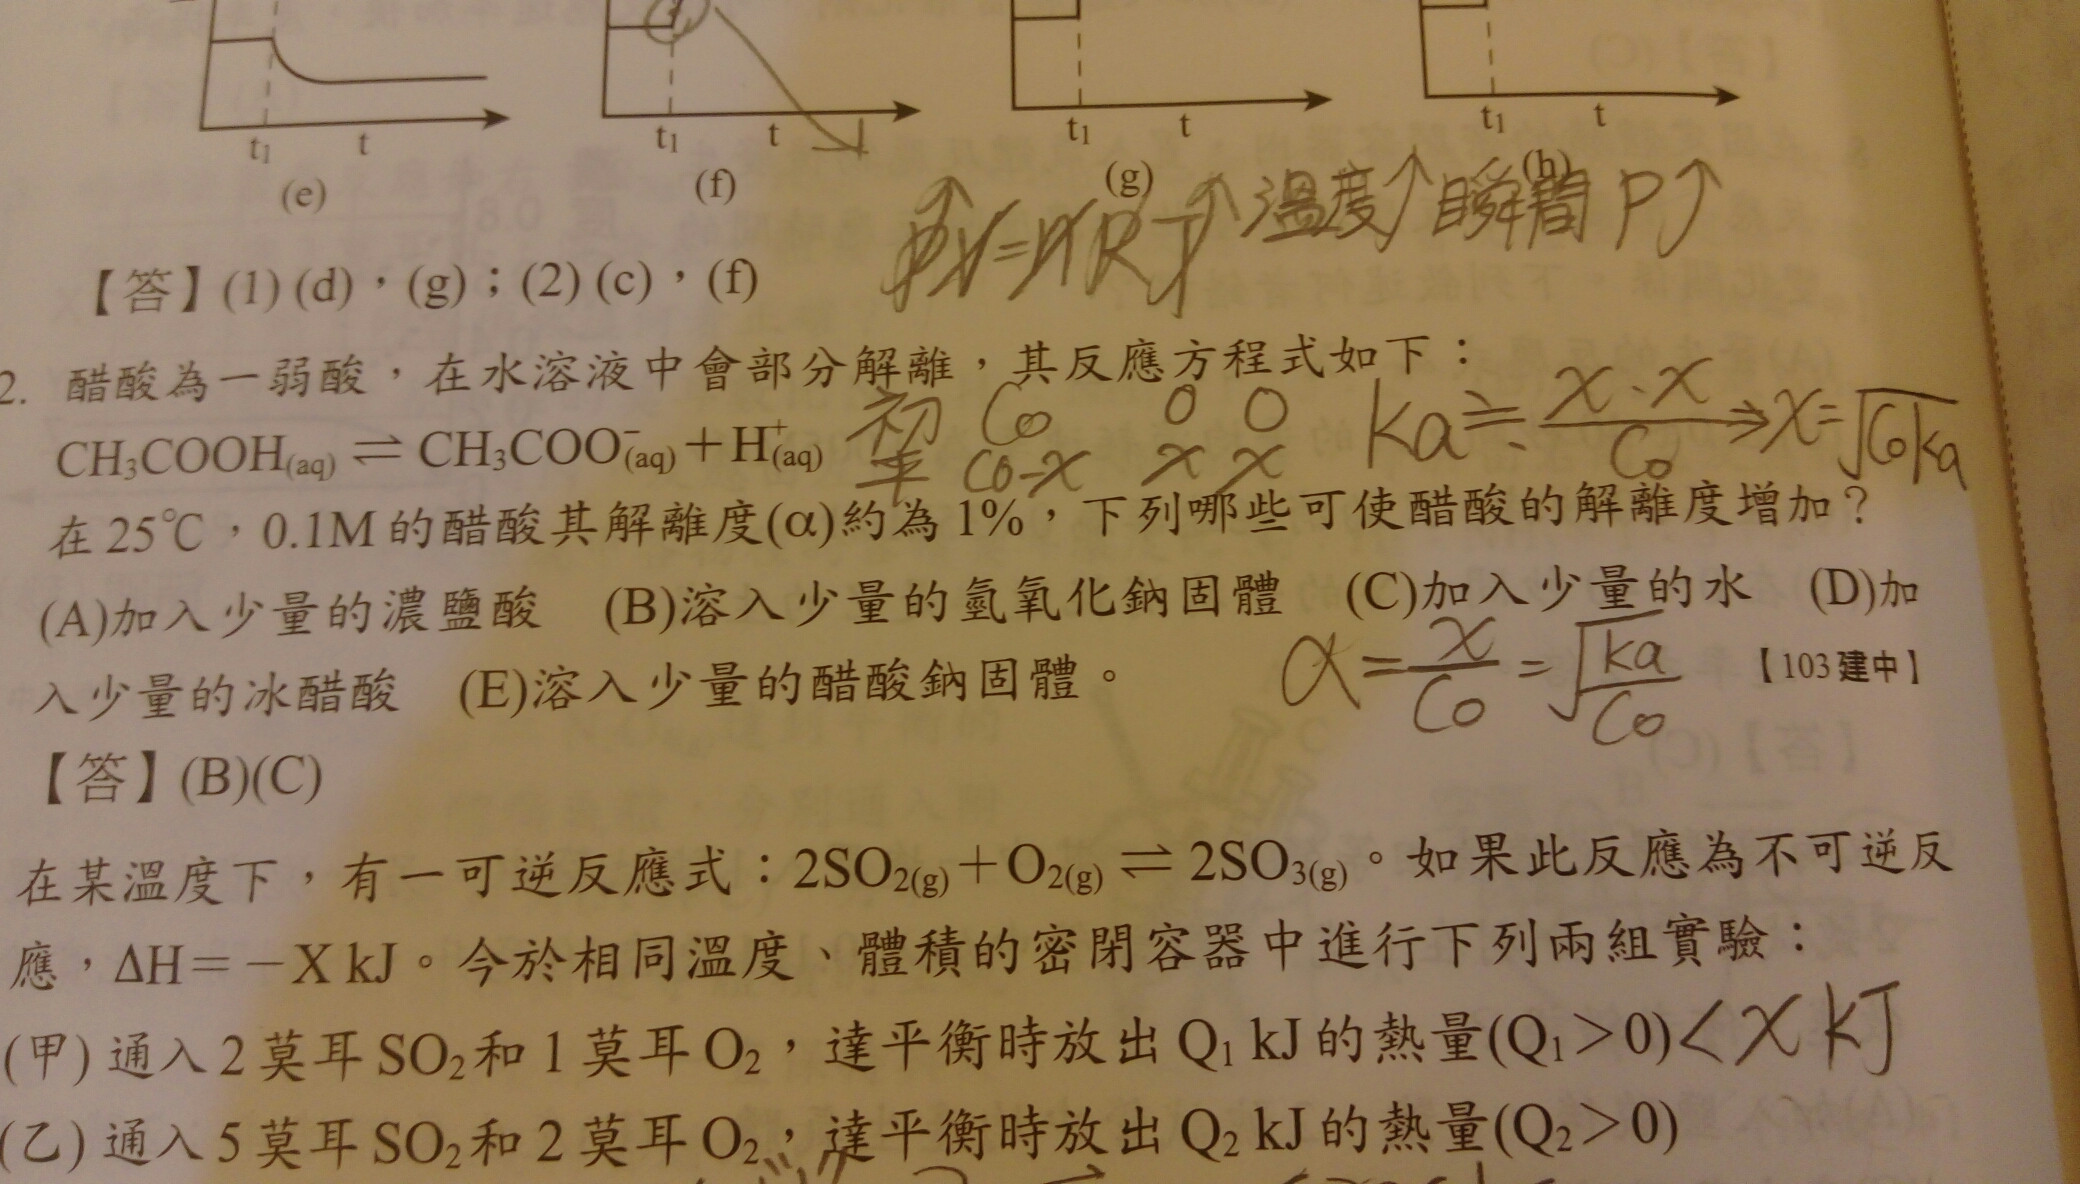 t₁ t
t₁ t
t₁ t
t₁ t
(e)
(f)
(g)
(h)
PV=nRT↑ 溫度↑瞬間 P↑
【答】(1) (d),(g);(2) (c),(f)
2. 醋酸為一弱酸,在水溶液中會部分解離,其反應方程式如下:
CH₃COOH(aq) ⇌ CH₃COO⁻(aq)+H⁺(aq)
初 C₀ 0 0
平 C₀-x x x
Ka≒ x·x/C₀ → x=√C₀Ka
在 25℃,0.1M 的醋酸其解離度(α)約為 1%,下列哪些可使醋酸的解離度增加?
(A)加入少量的濃鹽酸 (B)溶入少量的氫氧化鈉固體 (C)加入少量的水 (D)加
入少量的冰醋酸 (E)溶入少量的醋酸鈉固體。 【103 建中】
α=x/C₀=√Ka/C₀
【答】(B)(C)
在某溫度下,有一可逆反應式:2SO₂(g)+O₂(g) ⇌ 2SO₃(g)。如果此反應為不可逆反
應,ΔH=-X kJ。今於相同溫度、體積的密閉容器中進行下列兩組實驗:
(甲) 通入 2 莫耳 SO₂和 1 莫耳 O₂,達平衡時放出 Q₁ kJ 的熱量(Q₁>0)<X kJ
(乙) 通入 5 莫耳 SO₂和 2 莫耳 O₂,達平衡時放出 Q₂ kJ 的熱量(Q₂>0)